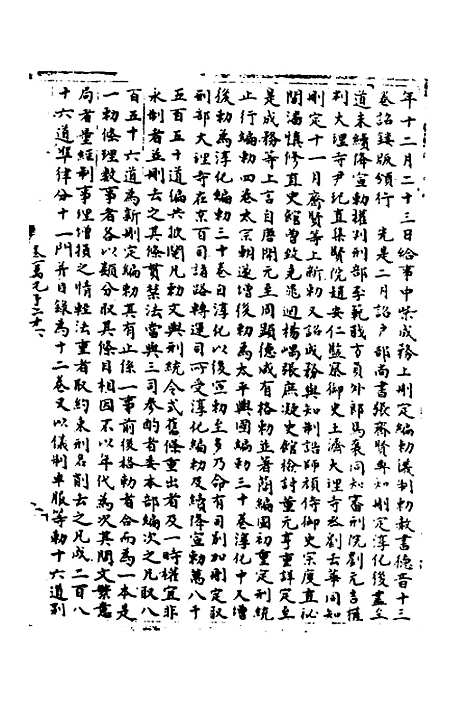 年十二月二十三日給事中柴成務上刪定編勑儀制勑敕書德音十三
卷詔鏤版頒行　先是二月詔戶部尚書張齊賢與知刪定淳化後盡至
道末續降宣勑權判刑部李範戲方員外郎馮亮同知審刑院劉元吉權
判大理寺尹玘直集賢院趙安仁監察御史王濟大理寺丞劉去華同知
刪定十一月齊賢等上新勑又詔成務與知制誥師頏侍御史宗度直祕
閣潘慎修直史館曾致堯晁迥楊嵎張庶凝史館檢討董元亨重詳定至
是成務等上言自唐開元至周顯德咸有格勑並著簡編國初重定刑統
止行編勑四卷太宗朝遂增後勑為太平興國編勑三十卷淳化中又增
後勑為淳化編勑三十卷自淳化以後宣勑至多乃命有司別加刪定取
刑部大理寺在京百司諸路轉運司所受淳化編勑及續降宣勑萬八千
五百五十道徧共披閱凡勑文與刑統令式舊條重出者及一時權宜非
永制者並刪去之其條貫禁法當與三司參酌者委本部編次之凡取八
百五十六道為新刪定編勑其有止係一事前後格勑者合而為一本是
一勑條理數事者各以類分取其條目相因不以年代為次其間文繁意
局者量經制事理增損之情輕法重者取約束刑名削去之凡成二百八
十六道準律分十一門并目錄為十二卷又以儀制車服等勑十六道別
卷一萬九千二十六